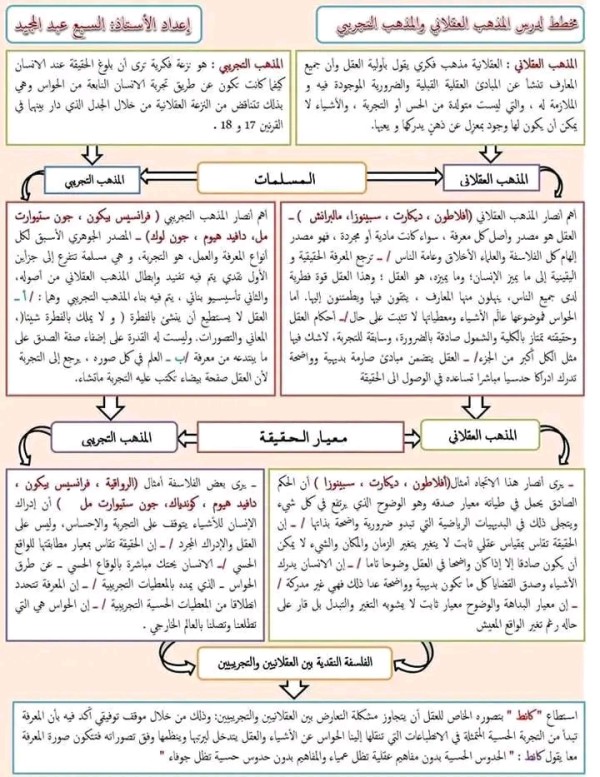 مخطط لدرس المذهب العقلاني والمذهب التجريبي
إعداد الأستاذ: السبع عبد المجيد
المذهب العقلاني : العقلانية مذهب فكري يقول بأولية العقل وأن جميع
المعارف تنشأ عن المبادئ العقلية القبلية والضرورية الموجودة فيه و
الملازمة له ، والتي ليست متولدة من الحس أو التجربة ، والأشياء لا
يمكن أن يكون لها وجود بمعزل عن ذهنٍ يدركها و يعيها.
المذهب التجريبي : هو نزعة فكرية ترى أن بلوغ الحقيقة عند الانسان
كيفما كانت تكون عن طريق تجربة الانسان النابعة من الحواس وهي
بذلك تتناقض من النزعة العقلانية من خلال الجدل الذي دار بينهما في
القرنين 17 و 18 .
المذهب العقلاني
المسلمات
المذهب التجريبي
أهم أنصار المذهب العقلاني (أفلاطون ، ديكارت ، سبينوزا، مالبرانش ) ـ
العقل هو مصدر وأصل كل معرفة ، سواء كانت مادية أو مجردة ، فهو مصدر
إلهام كل الفلاسفة والعلماء الأخلاق وعامة الناس / ـ ترجع المعرفة الحقيقية و
اليقينية إلى ما يميز الإنسان؛ وما يميزه، هو العقل ؛ وهذا العقل قوة فطرية
لدى جميع الناس، ينهلون منها المعارف ، يثقون فيها ويطمئنون إليها. أما
الحواس فموضوعها عالَم الأشياء ومعطياتها لا تثبت على حال/ـ أحكام العقل
وحقيقته تمتاز بالكلية والشمول صادقة بالضرورة، وسابقة للتجربة، لاشك فيها
مثل الكل أكبر من الجزء/ ـ العقل يتضمن مبادئ صارمة بديهية وواضحة
تدرك ادراكا حدسيا مباشرا تساعده في الوصول الى الحقيقة
أهم أنصار المذهب التجريبي ( فرانسيس بيكون ، جون ستيوارت
مل، دافيد هيوم ، جون لوك) ـ المصدر الجوهري الأسبق لكل
أنواع المعرفة والعمل، هو التجربة، و هي مسلمة تتفرع إلى جزأين
الأول نقدي يتم فيه تفنيد وإبطال المذهب العقلاني من أصوله،
والثاني تأسيسيو بنائي ، يتم فيه بناء المذهب التجريبي وهما : /أـ
العقل لا يستطيع أن ينشئ بالفطرة ( و لا يملك بالفطرة شيئا(،
المعاني والتصورات. وليست له القدرة على إضفاء صفة الصدق على
ما يبتدعه من معرفة /ب ـ العلم في كل صوره ، يرجع إلى التجربة
لأن العقل صفحة بيضاء تكتب عليه التجربة ماتشاء.
المذهب العقلاني
معيار الحقيقة
المذهب التجريبي
ـ يرى أنصار هذا الاتجاه أمثال(أفلاطون ، ديكارت ، سبينوزا ) أن الحكم
الصادق يحمل في طياته معيار صدقه وهو الوضوح الذي يرتفع في كل شيء
ويتجلى ذلك في البديهيات الرياضية التي تبدو ضرورية واضحة بذاتها / ـ إن
الحقيقة تقاس بمقياس عقلي ثابت لا يتغير بتغير الزمان والمكان والشيء لا يمكن
أن يكون صادقا إلا إذا كان واضحا في العقل وضوحا تاما / ـ إن الانسان يدرك
الأشياء وصدق القضايا كل ما تكون بديهية وواضحة عدا ذلك فهي غير مدركة /
ـ إن معيار البداهة والوضوح معيار ثابت لا يشوبه التغير والتبدل بل قار على
حاله رغم تغير الواقع المعيش
ـ يرى بعض الفلاسفة أمثال (الرواقية ، فرانسيس بيكون ،
دافيد هيوم ، كوندياك، جون ستيوارت مل ) أن إدراك
الإنسان للأشياء يتوقف على التجربة والإحساس، وليس على
العقل والإدراك المجرد / ـ إن الحقيقة تقاس بمعيار مطابقتها للواقع
الحسي /ـ الانسان يحتك مباشرة بالوقائع الحسي ـ عن طرق
الحواس ـ الذي يمده بالمعطيات التجريبية / ـ إن المعرفة تتحدد
انطلاقا من المعطيات الحسية التجريبية / ـ إن الحواس هي التي
تطلعنا وتصلنا بالعالم الخارجي .
الفلسفة النقدية بين العقلانيين والتجريبيين
استطاع "كانط " بتصوره الخاص للعقل أن يتجاوز مشكلة التعارض بين العقلانيين والتجريبيين: وذلك من خلال موقف توفيقي أكد فيه بأن المعرفة
تبدأ من التجربة الحسية المتمثلة في الانطباعات التي تنقلها إلينا الحواس عن الأشياء والعقل يتدخل ليرتبها وينظمها وفق تصوراته فتتكون صورة المعرفة
معا يقول كانط : " الحدوس الحسية بدون مفاهيم عقلية تظل عمياء والمفاهيم بدون حدوس حسية تظل جوفاء "